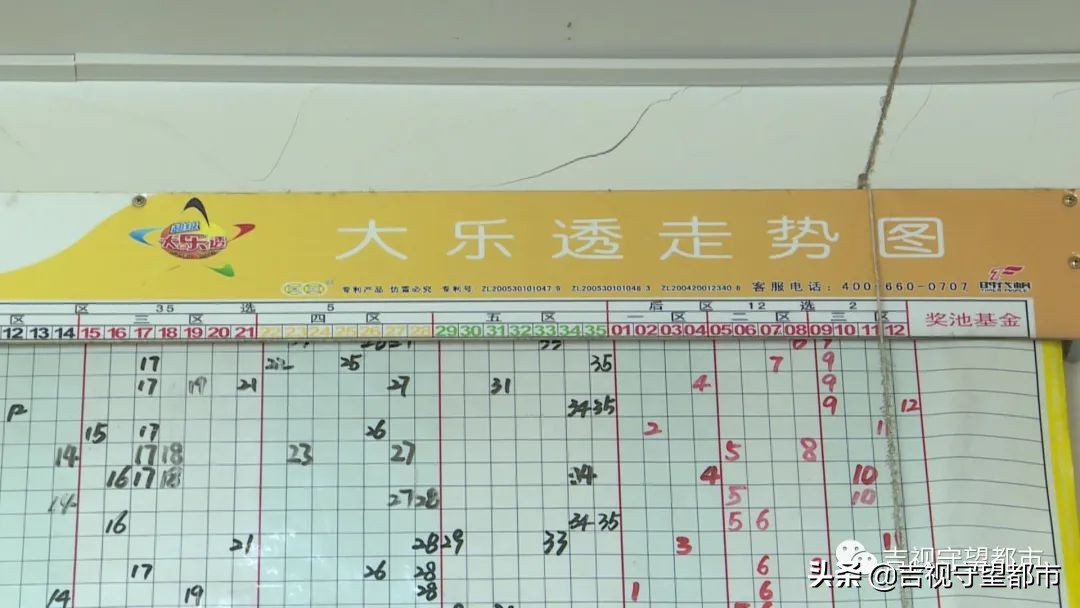 超级
大乐透
大乐透走势图
专利产品 仿冒必究 专利号 ZL200530101047.9 ZL200530101048.3 ZL200420012340.8 客服电话:400-660-0707
区 35 选 5 后 区 12 选 2
三 区 四 区 五 区 一 区 二 区 三 区 奖池基金
12 13 14 15 16 17 18 19 20 21 22 23 24 25 26 27 28 29 30 31 32 33 34 35 01 02 03 04 05 06 07 08 09 10 11 12
17 25 35 7 9
17 19 21 27 31 4 9
34 35 9 12
15 17 26 2
14 17 18 23 27 5 8
16 17 18 4 10
14 27 28 5 10
16 34 35 5 6
21 28 29 33 3
17 26 28 6
14 19 28 1 6
吉视守望都市
头条 @吉视守望都市